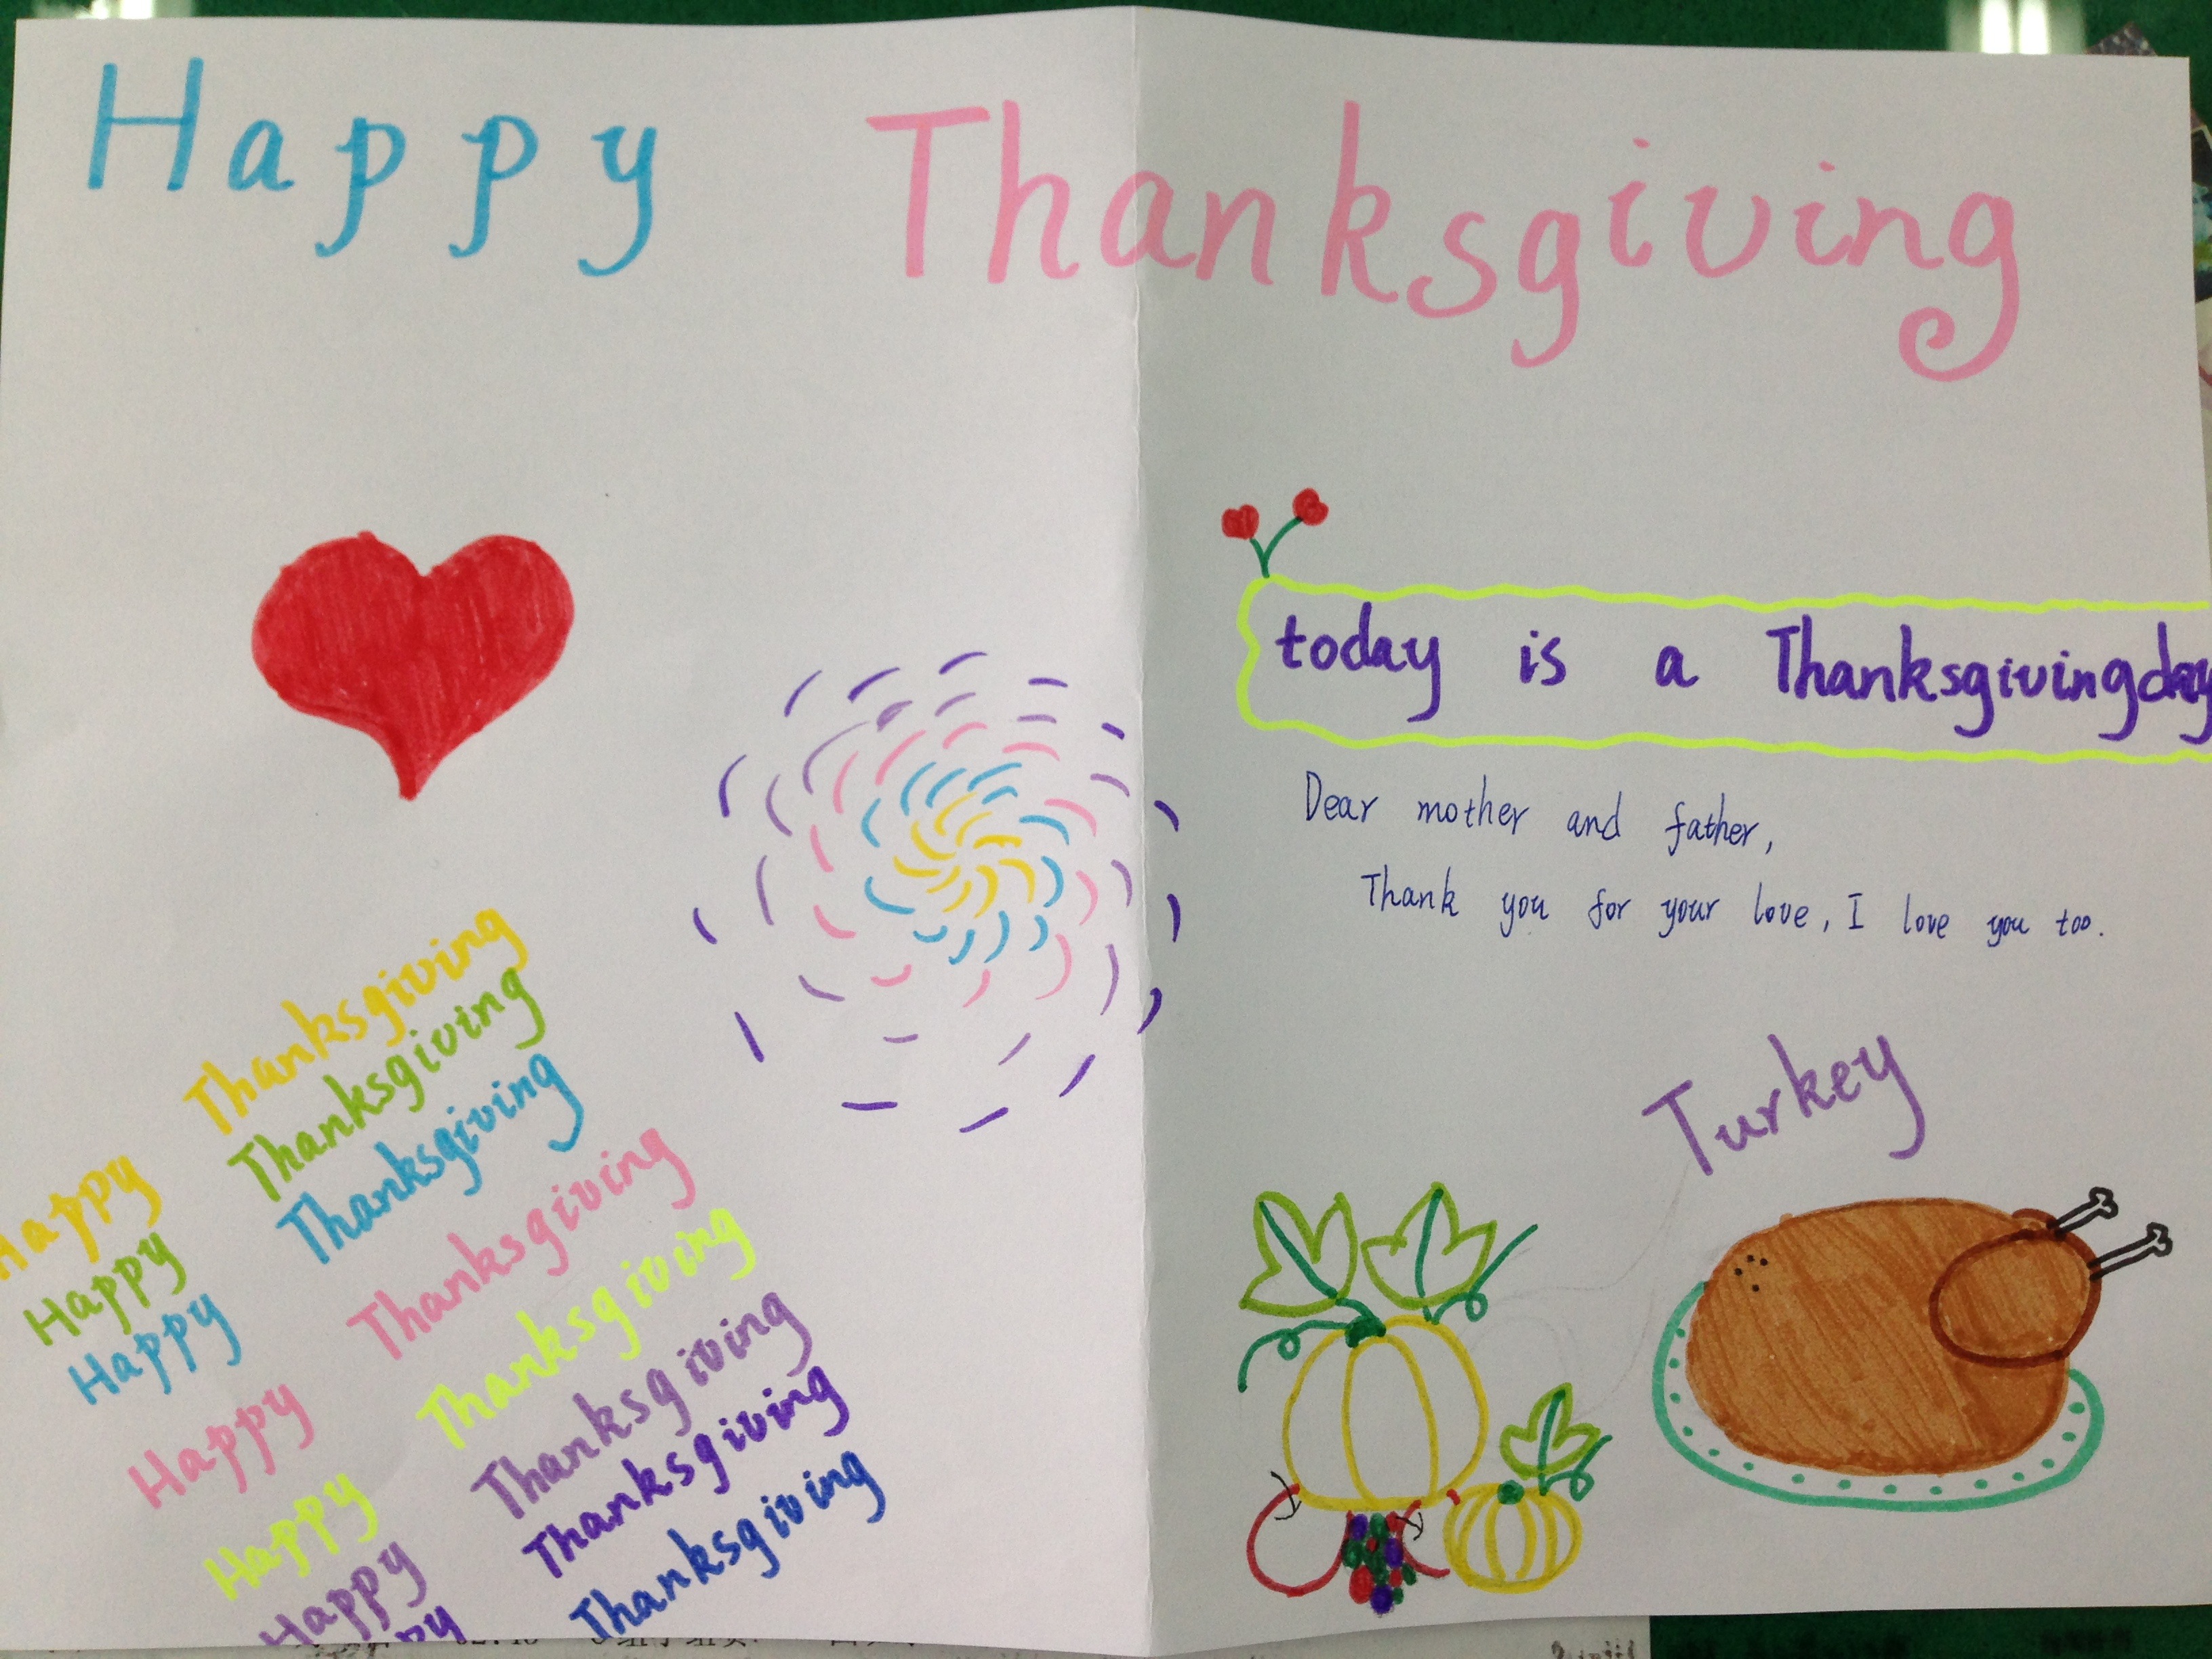 Happy Thanksgiving
today is a Thanksgivingday
Dear mother and father,
Thank you for your love, I love you too.
Turkey
Happy Thanksgiving
Happy Thanksgiving
Happy Thanksgiving
Happy Thanksgiving
Happy Thanksgiving
Happy Thanksgiving
Thanksgiving
Thanksgiving